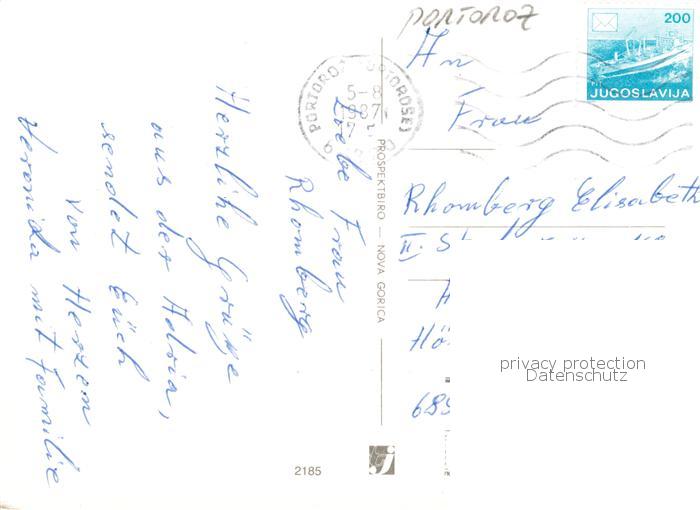 PORTOROZ
200
JUGOSLAVIJA
PORTOROŽ PORTOROSE
5-8
1987
An
Frau
Rhomberg Elisabeth
II. St
Hö
689
privacy protection
Datenschutz
Liebe Frau
Rhomberg
Herzlihe Grüße
aus der Adria,
sendet Euch
von Herzen
Veronika mit Familie
PROSPEKTBIRO — NOVA GORICA
2185